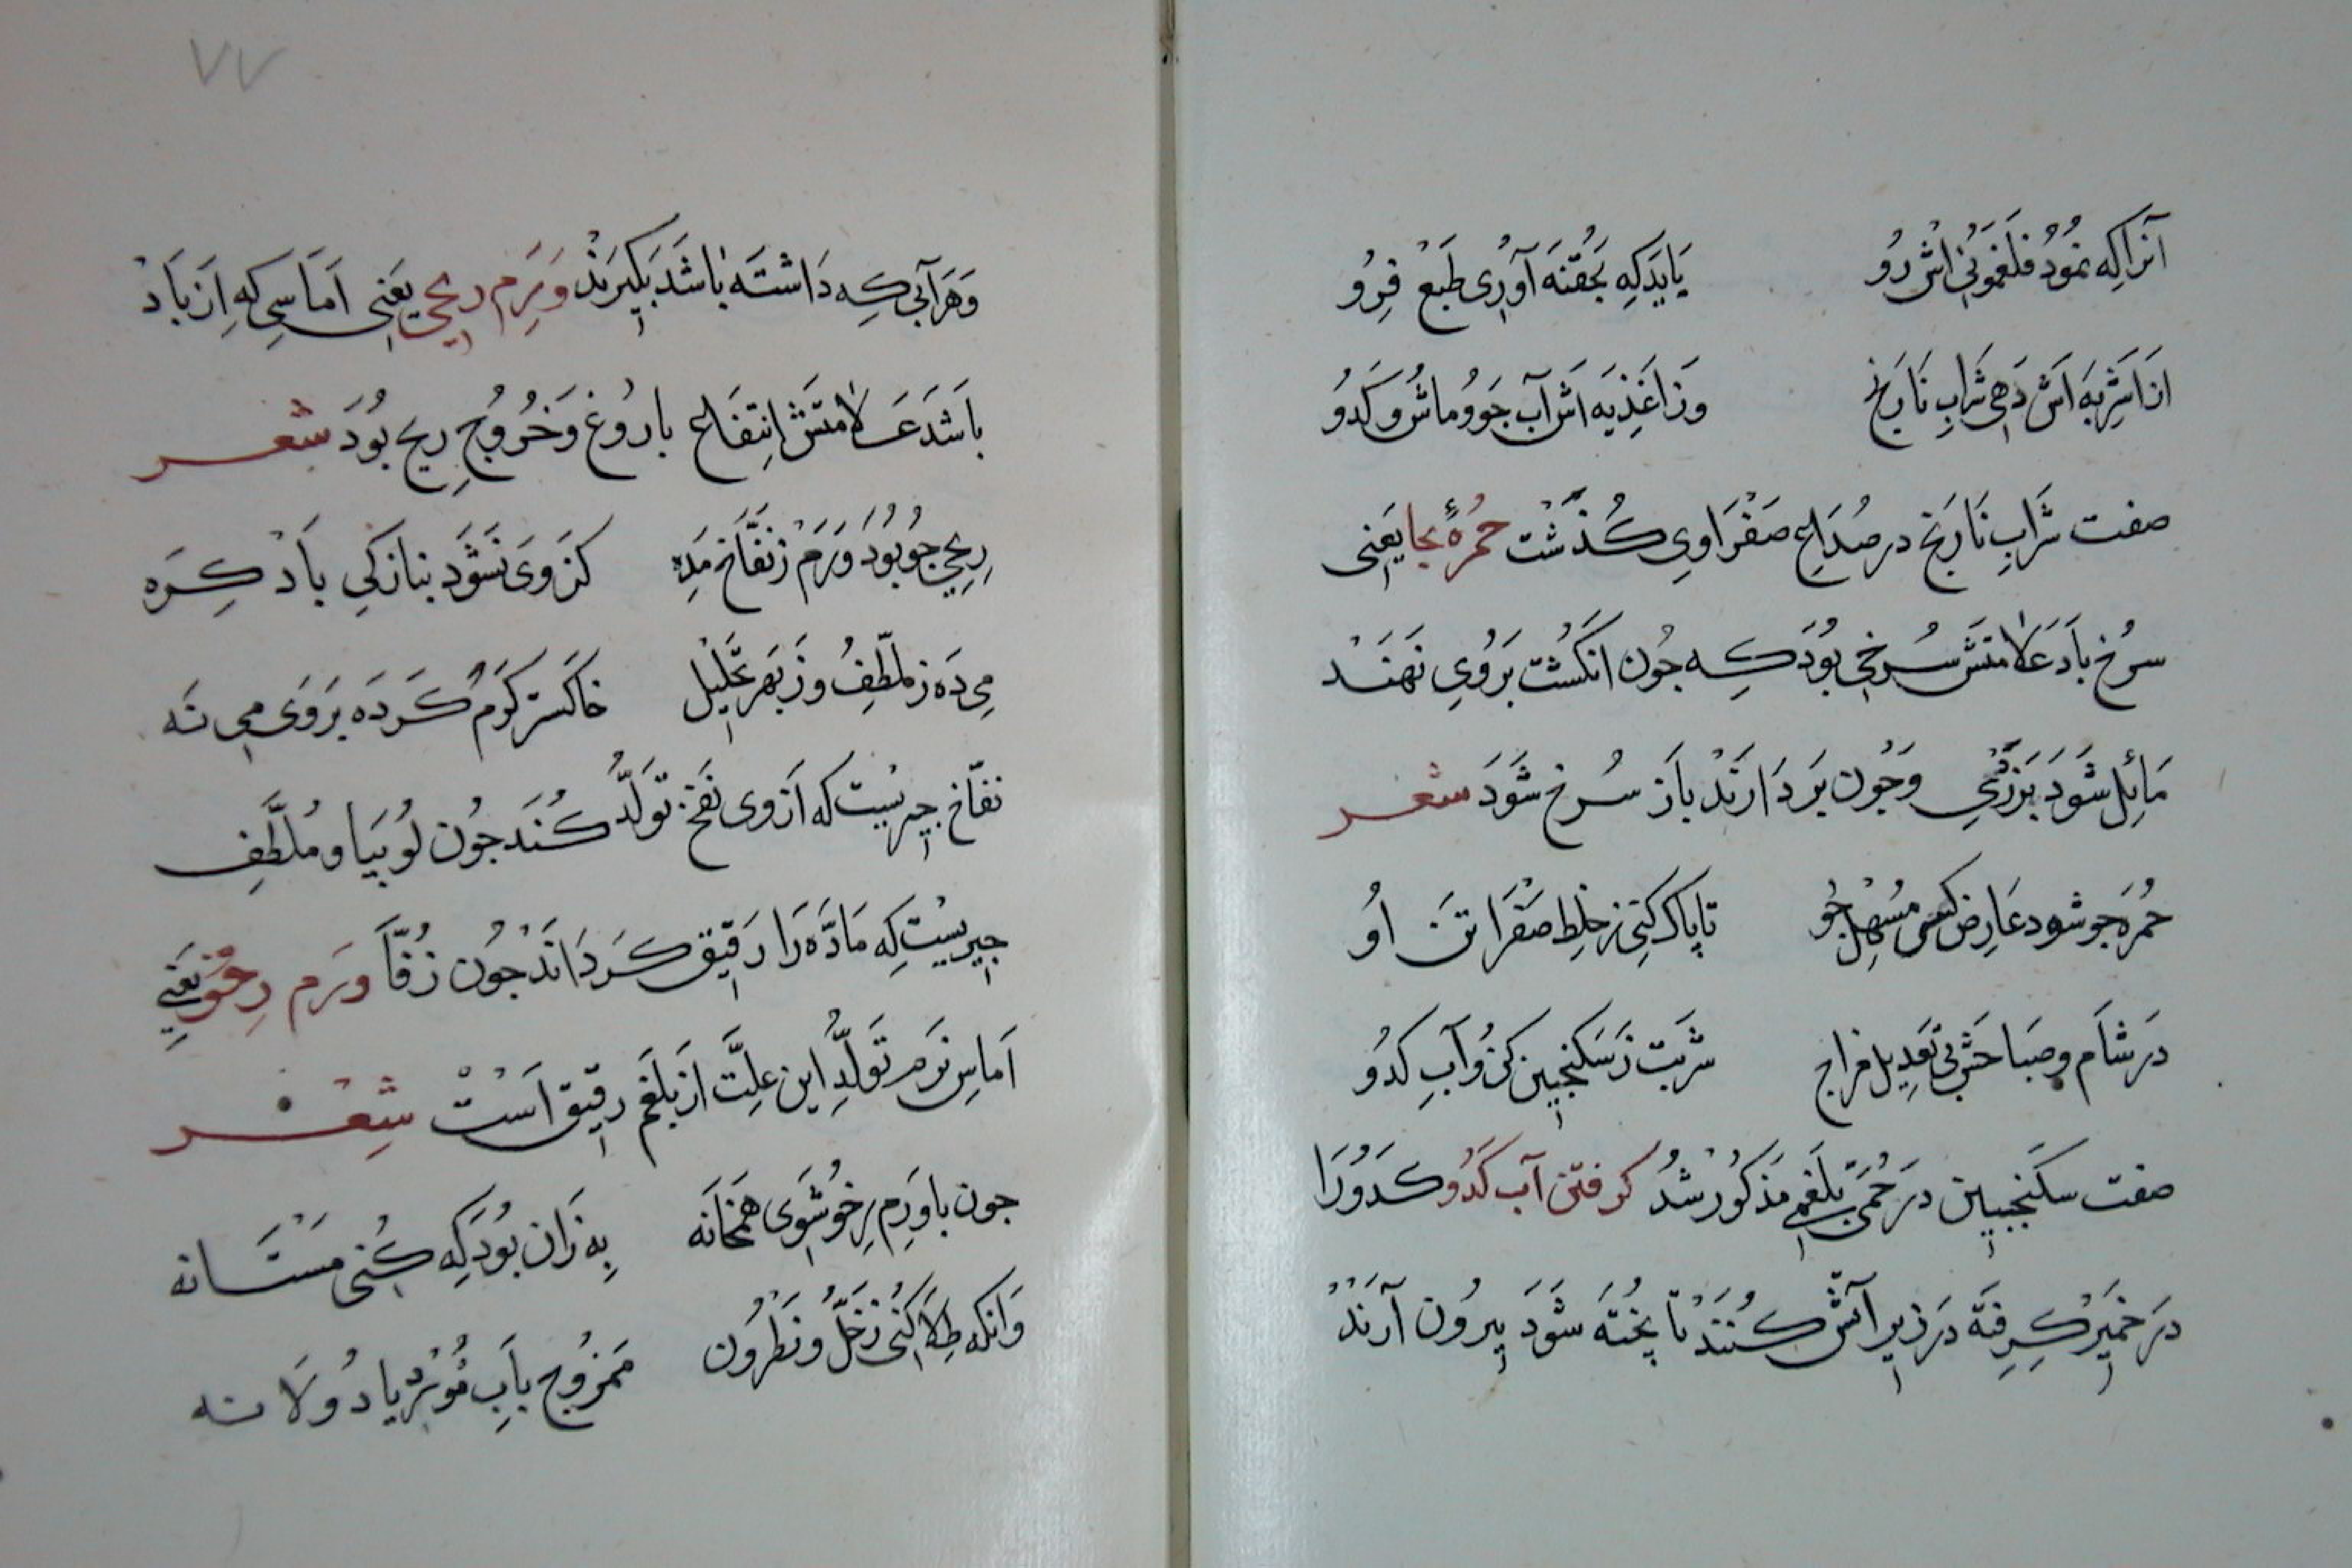 آنرا که نمود فلغمونی اش رو یابد که بحقنه آوری طبع فرو
از اشربه اش دهی شراب نارنج وز اغذیه اش آب جو و ماش و کدو
صفت شراب نارنج در صداع صفراوی کذشت حمرهٔ بجا یعنی
سرخ باد علامتش سرخی بود که جون انکشت بر وی نهند
مائل شود بزردی وجون بردارند باز سرخ شود شعر
حمره جو شود عارض کس مسهل جو تا پاک کنی ز خلط صفرا تن او
در شام و صباحش پی تعدیل مزاج شربت ز سکنجبین کن و آب کدو
صفت سکنجبین در حمی بلغمی مذکور شد کرفتن آب کدو کدو را
در خمیر کرفته در زیر آتش کنند تا پخته شود بیرون آرند
٧٧
وهر آبی که داشته باشد بکیرند ورم ریحی یعنی اماسی که از باد
باشد علامتش انتفاخ با روغ و خروج ریح بود شعر
ریحی جو بود ورم ز نفاخ مده کز وی نشود بنازکی باد کره
می ده ز ملطف وز بهر تحلیل خاکستر کرم کرده بر وی می نه
نفاخ جیزیست که از وی نفخ تولد کند جون لوبیا و ملطف
جیزیست که ماده را رقیق کرداند جون زفا ورم رخو یعنی
اماس نرم تولد این علت از بلغم رقیق است شعر
جون با ورم رخو شوی همخانه به زان بود که کنی مستانه
وانکه طلا کنی ز خل و نطرون ممزوج بآب